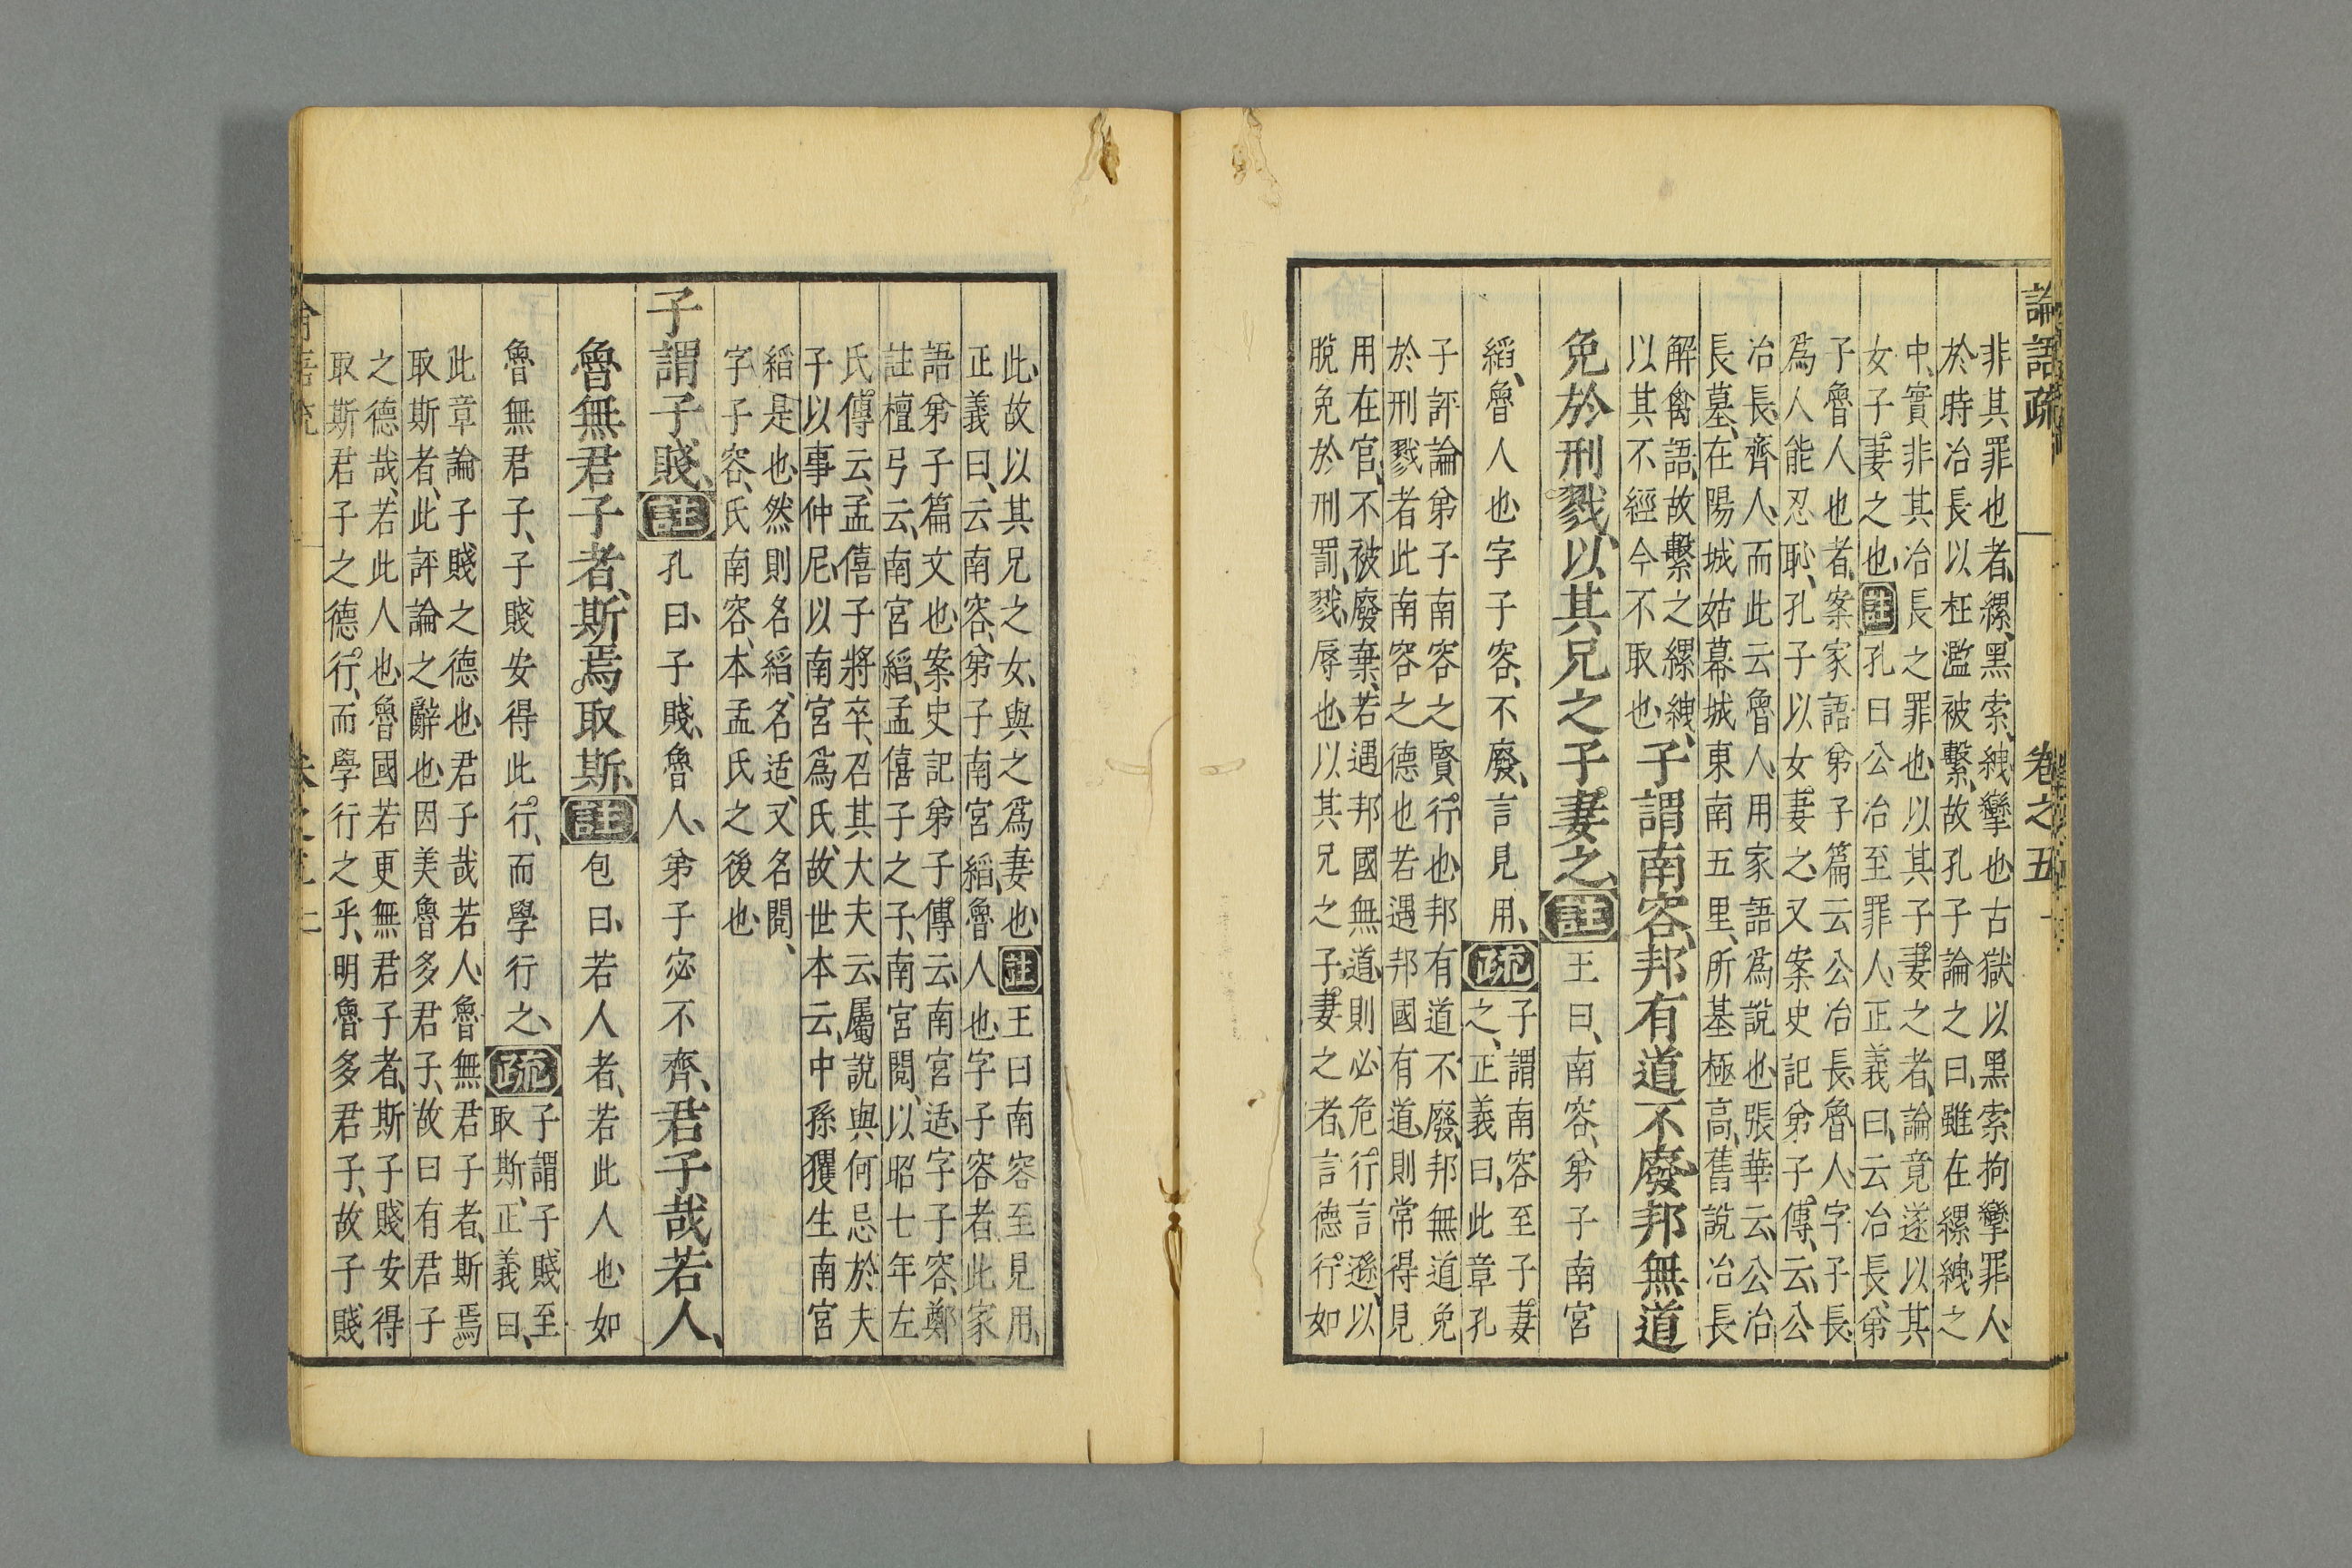 論語疏 卷之五
非其罪也者、縲、黑索、絏、攣也、古獄以黑索拘攣罪人、
於時冶長以枉濫被繫、故孔子論之曰、雖在縲絏之
中、實非其冶長之罪也、以其子妻之者、論竟遂以其
女子妻之也、註孔曰公冶至罪人、正義曰、云冶長、弟
子魯人也者、案家語弟子篇云公冶長、魯人、字子長、
爲人能忍恥、孔子以女妻之、又案史記弟子傳、云、公
冶長、齊人、而此云魯人、用家語爲說也、張華云、公冶
長墓、在陽城姑幕城東南五里、所基極高、舊說冶長
解禽語、故繫之縲絏、
以其不經今不取也、
子謂南容、邦有道不廢邦無道
免於刑戮、以其兄之子妻之、註王曰、南容、弟子南宮
縚、魯人也字子容、不廢、言見用、疏子謂南容至子妻
之、正義曰、此章孔
子評論弟子南容之賢行也、邦有道不廢、邦無道免
於刑戮者此南容之德也若遇邦國有道、則常得見
用在官、不被廢棄、若遇邦國無道、則必危行言遜、以
脫免於刑罰、戮辱也、以其兄之子妻之者、言德行如
此、故以其兄之女、與之爲妻也、註王曰南容至見用、
正義曰、云南容、弟子南宮縚、魯人也、字子容者、此家
語弟子篇文也、案史記弟子傳云、南宮适、字子容、鄭
註檀弓云、南宮縚、孟僖子之子、南宮閱、以昭七年左
氏傳云、孟僖子將卒、召其大夫云、屬說與何忌於夫
子以事仲尼、以南宮爲氏、故世本云、中孫玃生南宮
縚是也、然則名縚、名适、又名閱、
字子容、氏南容、本孟氏之後也、
子謂子賤、註孔曰、子賤、魯人、弟子宓不齊、君子哉若人、
魯無君子者、斯焉取斯、註包曰、若人者、若此人也、如
魯無君子、子賤安得此行、而學行之、疏子謂子賤至
取斯、正義曰、
此章論子賤之德也、君子哉若人、魯無君子者、斯焉
取斯者、此評論之辭也、因美魯多君子、故曰有君子
之德哉、若此人也、魯國若更無君子者、斯子賤安得
取斯君子之德行、而學行之乎、明魯多君子、故子賤